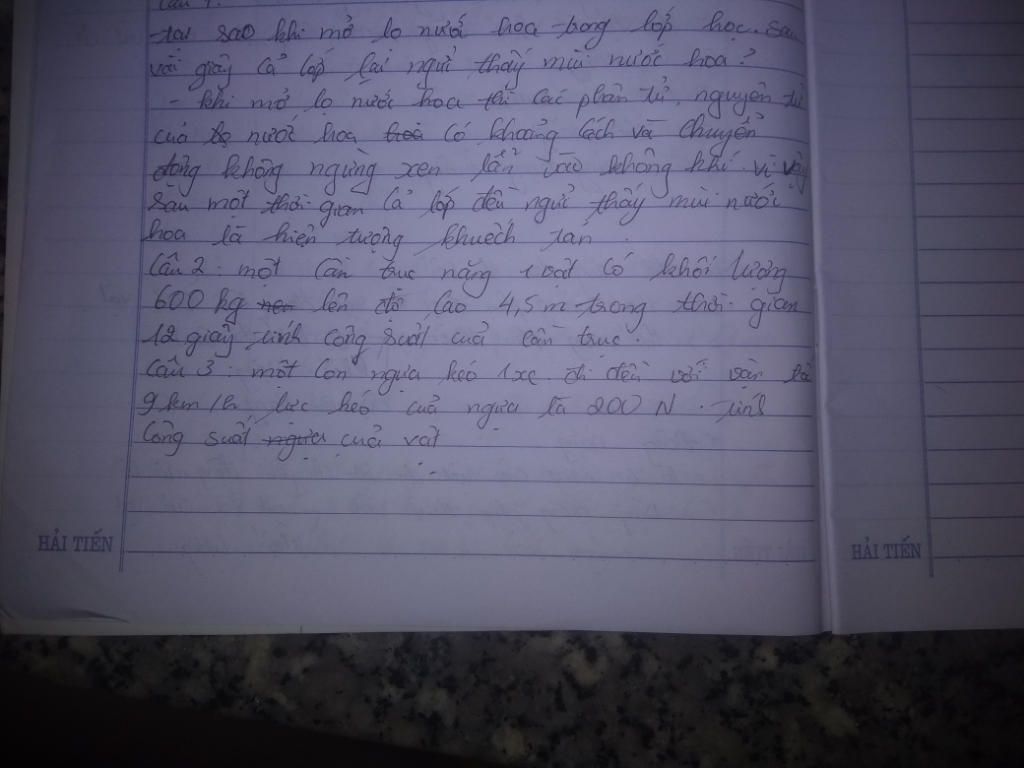 Câu 1:
-tại sao khi mở lọ nước hoa trong lớp học. sau
vài giây cả lớp lại ngửi thấy mùi nước hoa?
- khi mở lọ nước hoa thì các phân tử, nguyên tử
của lọ nước hoa có khoảng cách và chuyển
động không ngừng xen lẫn vào không khí. vì vậy
sau một thời gian cả lớp đều ngửi thấy mùi nước
hoa là hiện tượng khuếch tán.
Câu 2: một cần trục nâng 1 vật có khối lượng
600 kg lên độ cao 4,5m trong thời gian
12 giây tính công suất của cần trục.
Câu 3: một con ngựa kéo 1 xe đi đều với vận là
9 km/h. lực kéo cuả ngựa là 200 N. tính
công suất ngựa cuả vật
HẢI TIẾN
HẢI TIẾN